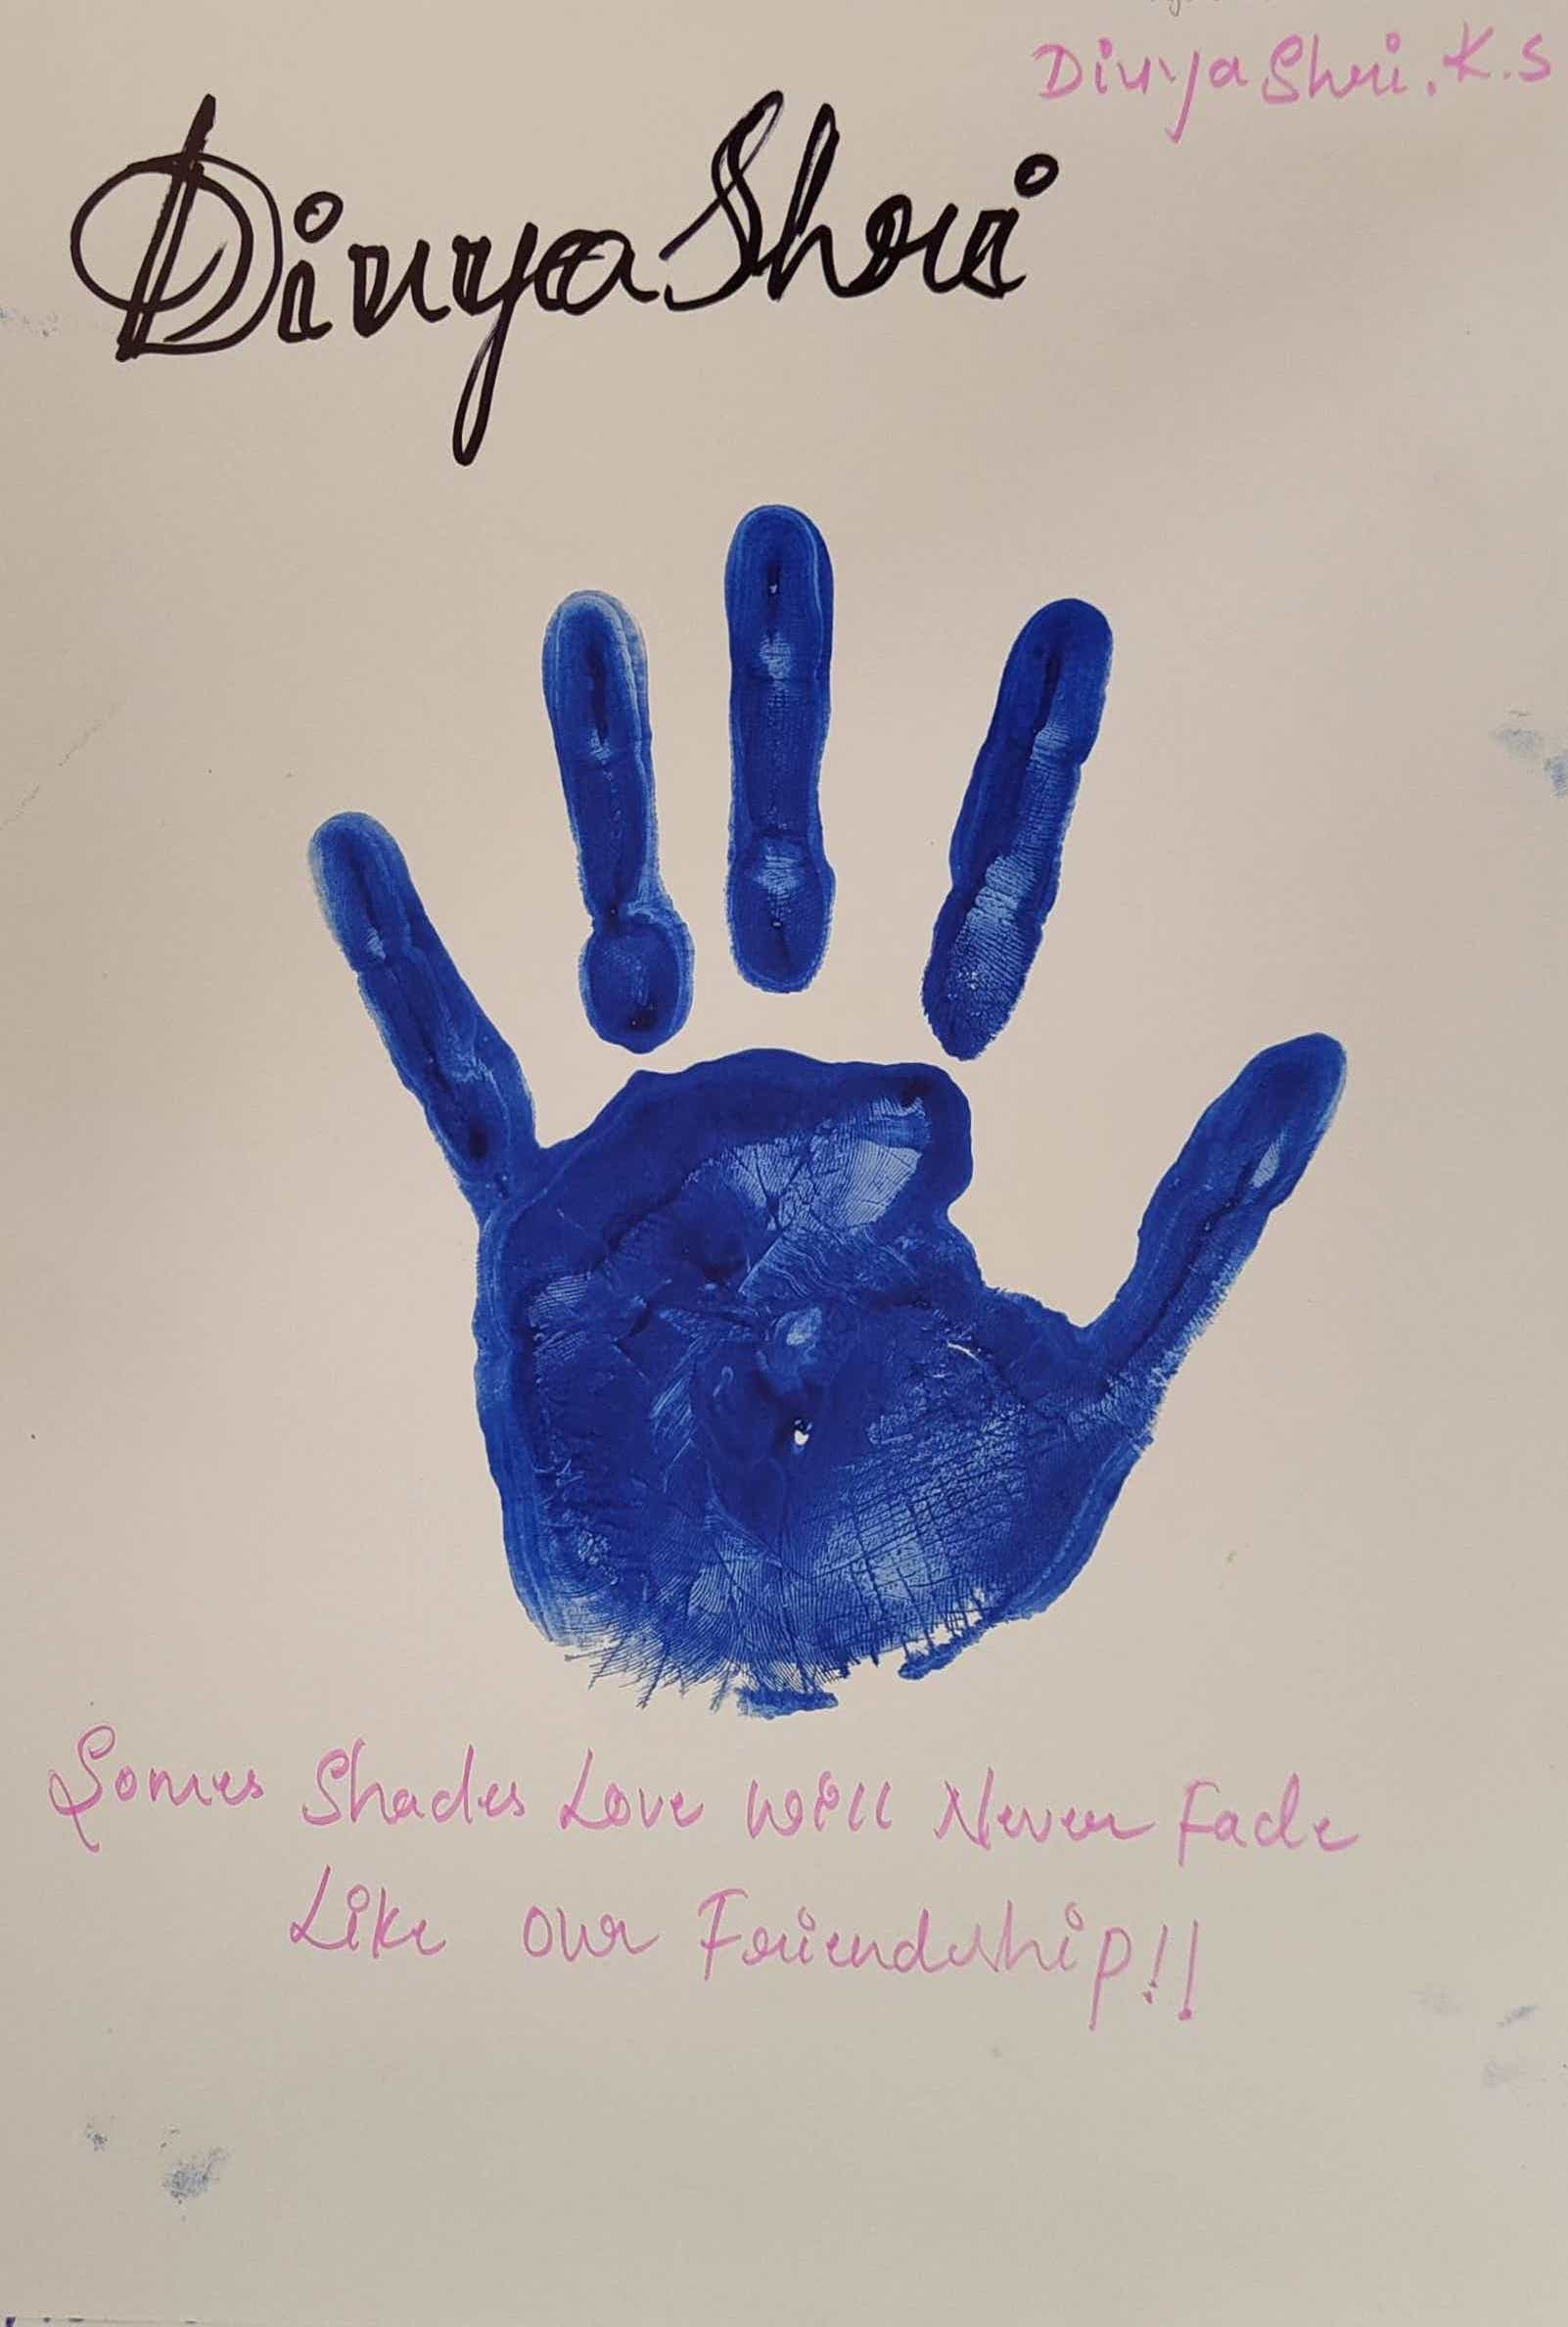 Divya Shri. K.S
Divya Shri
Somes Shades Love Will Never Fade
Like Our Friendship!!